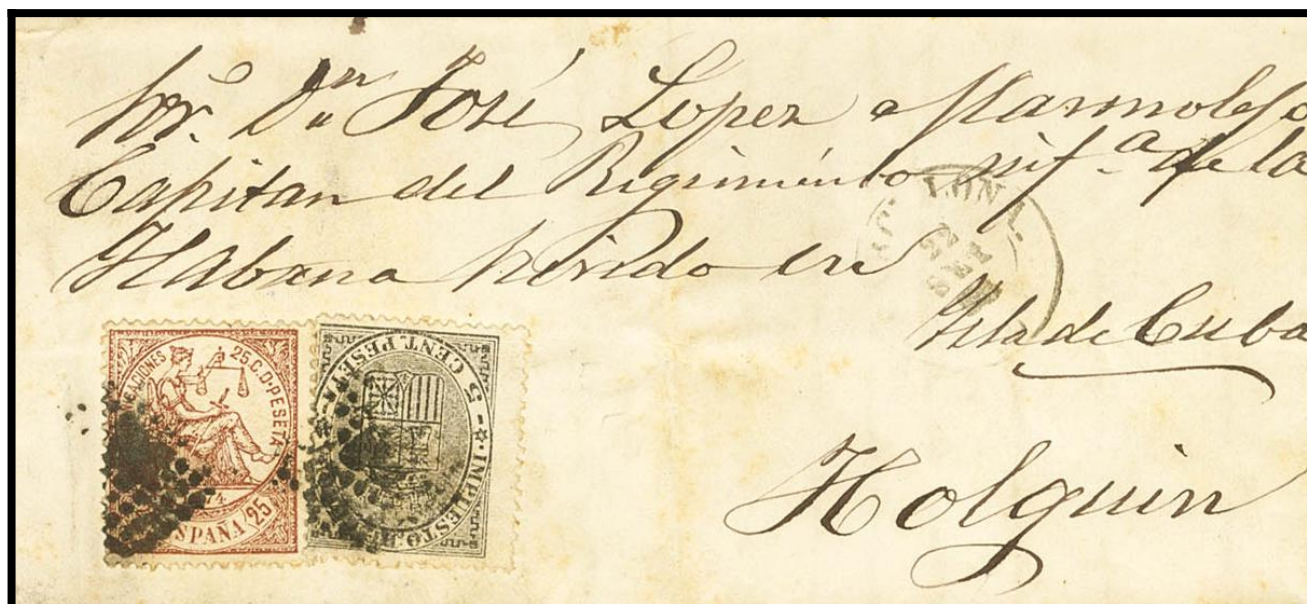 Sor. Dn José Lopez Marmolejo
Capitan del Regimiento inf.a de la
Habana herido en
Isla de Cuba
Holguin
25 C. D. PESETA
1874
ESPAÑA 25
5 CENT. PESETA
IMPUESTO